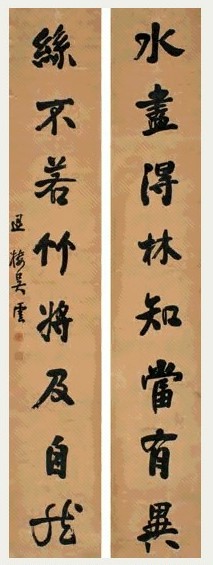 水盡得林知當有異
絲不若竹將及自然
退樓吳雲